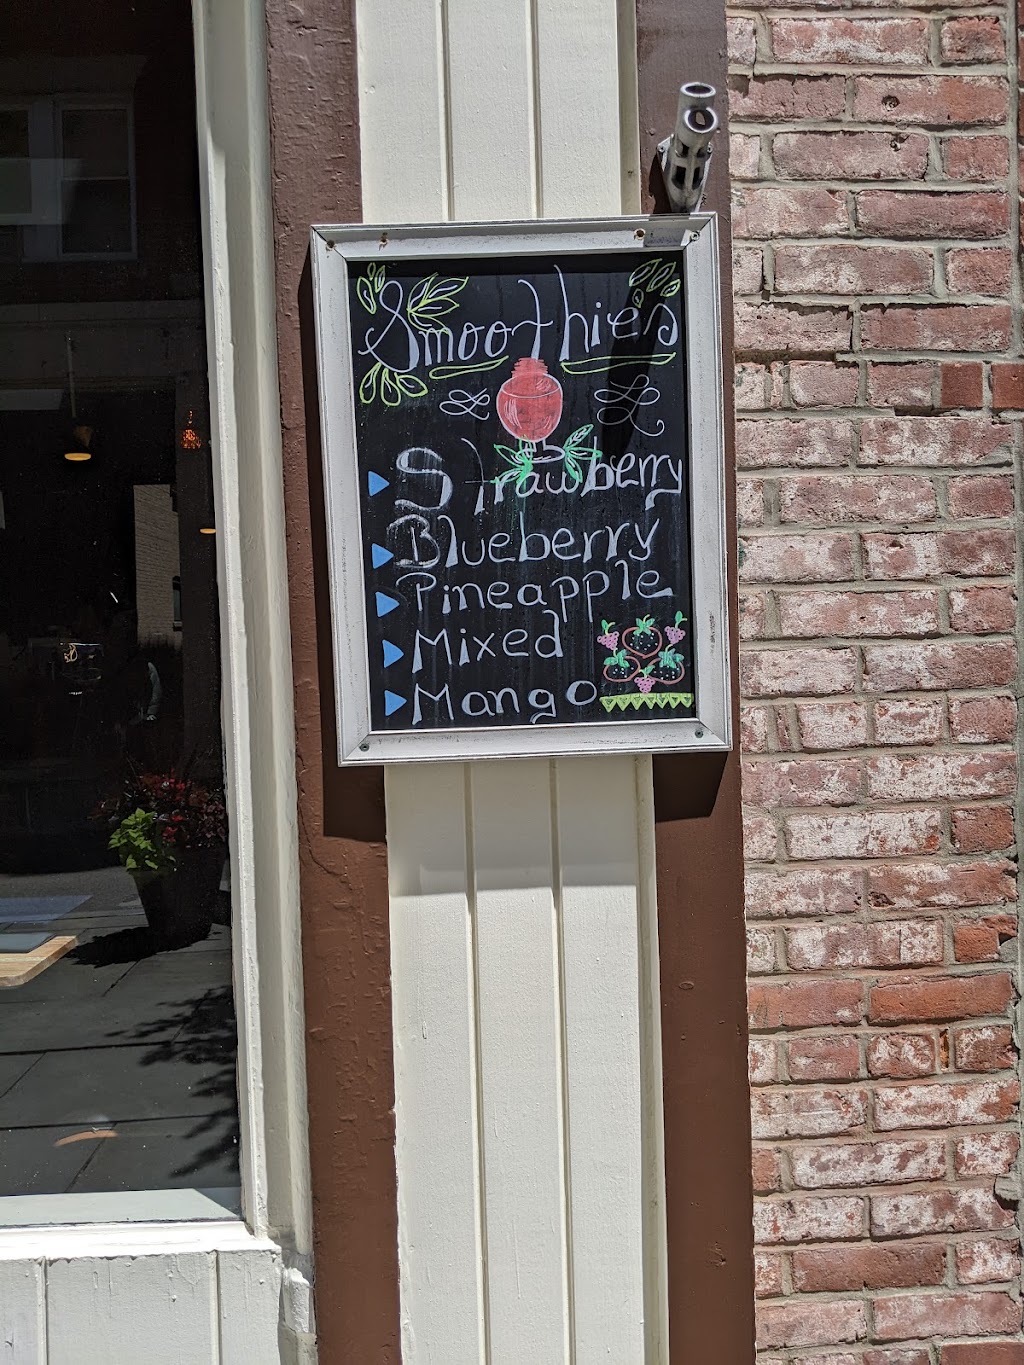 Smoothies
Strawberry
Blueberry
Pineapple
Mixed
Mango